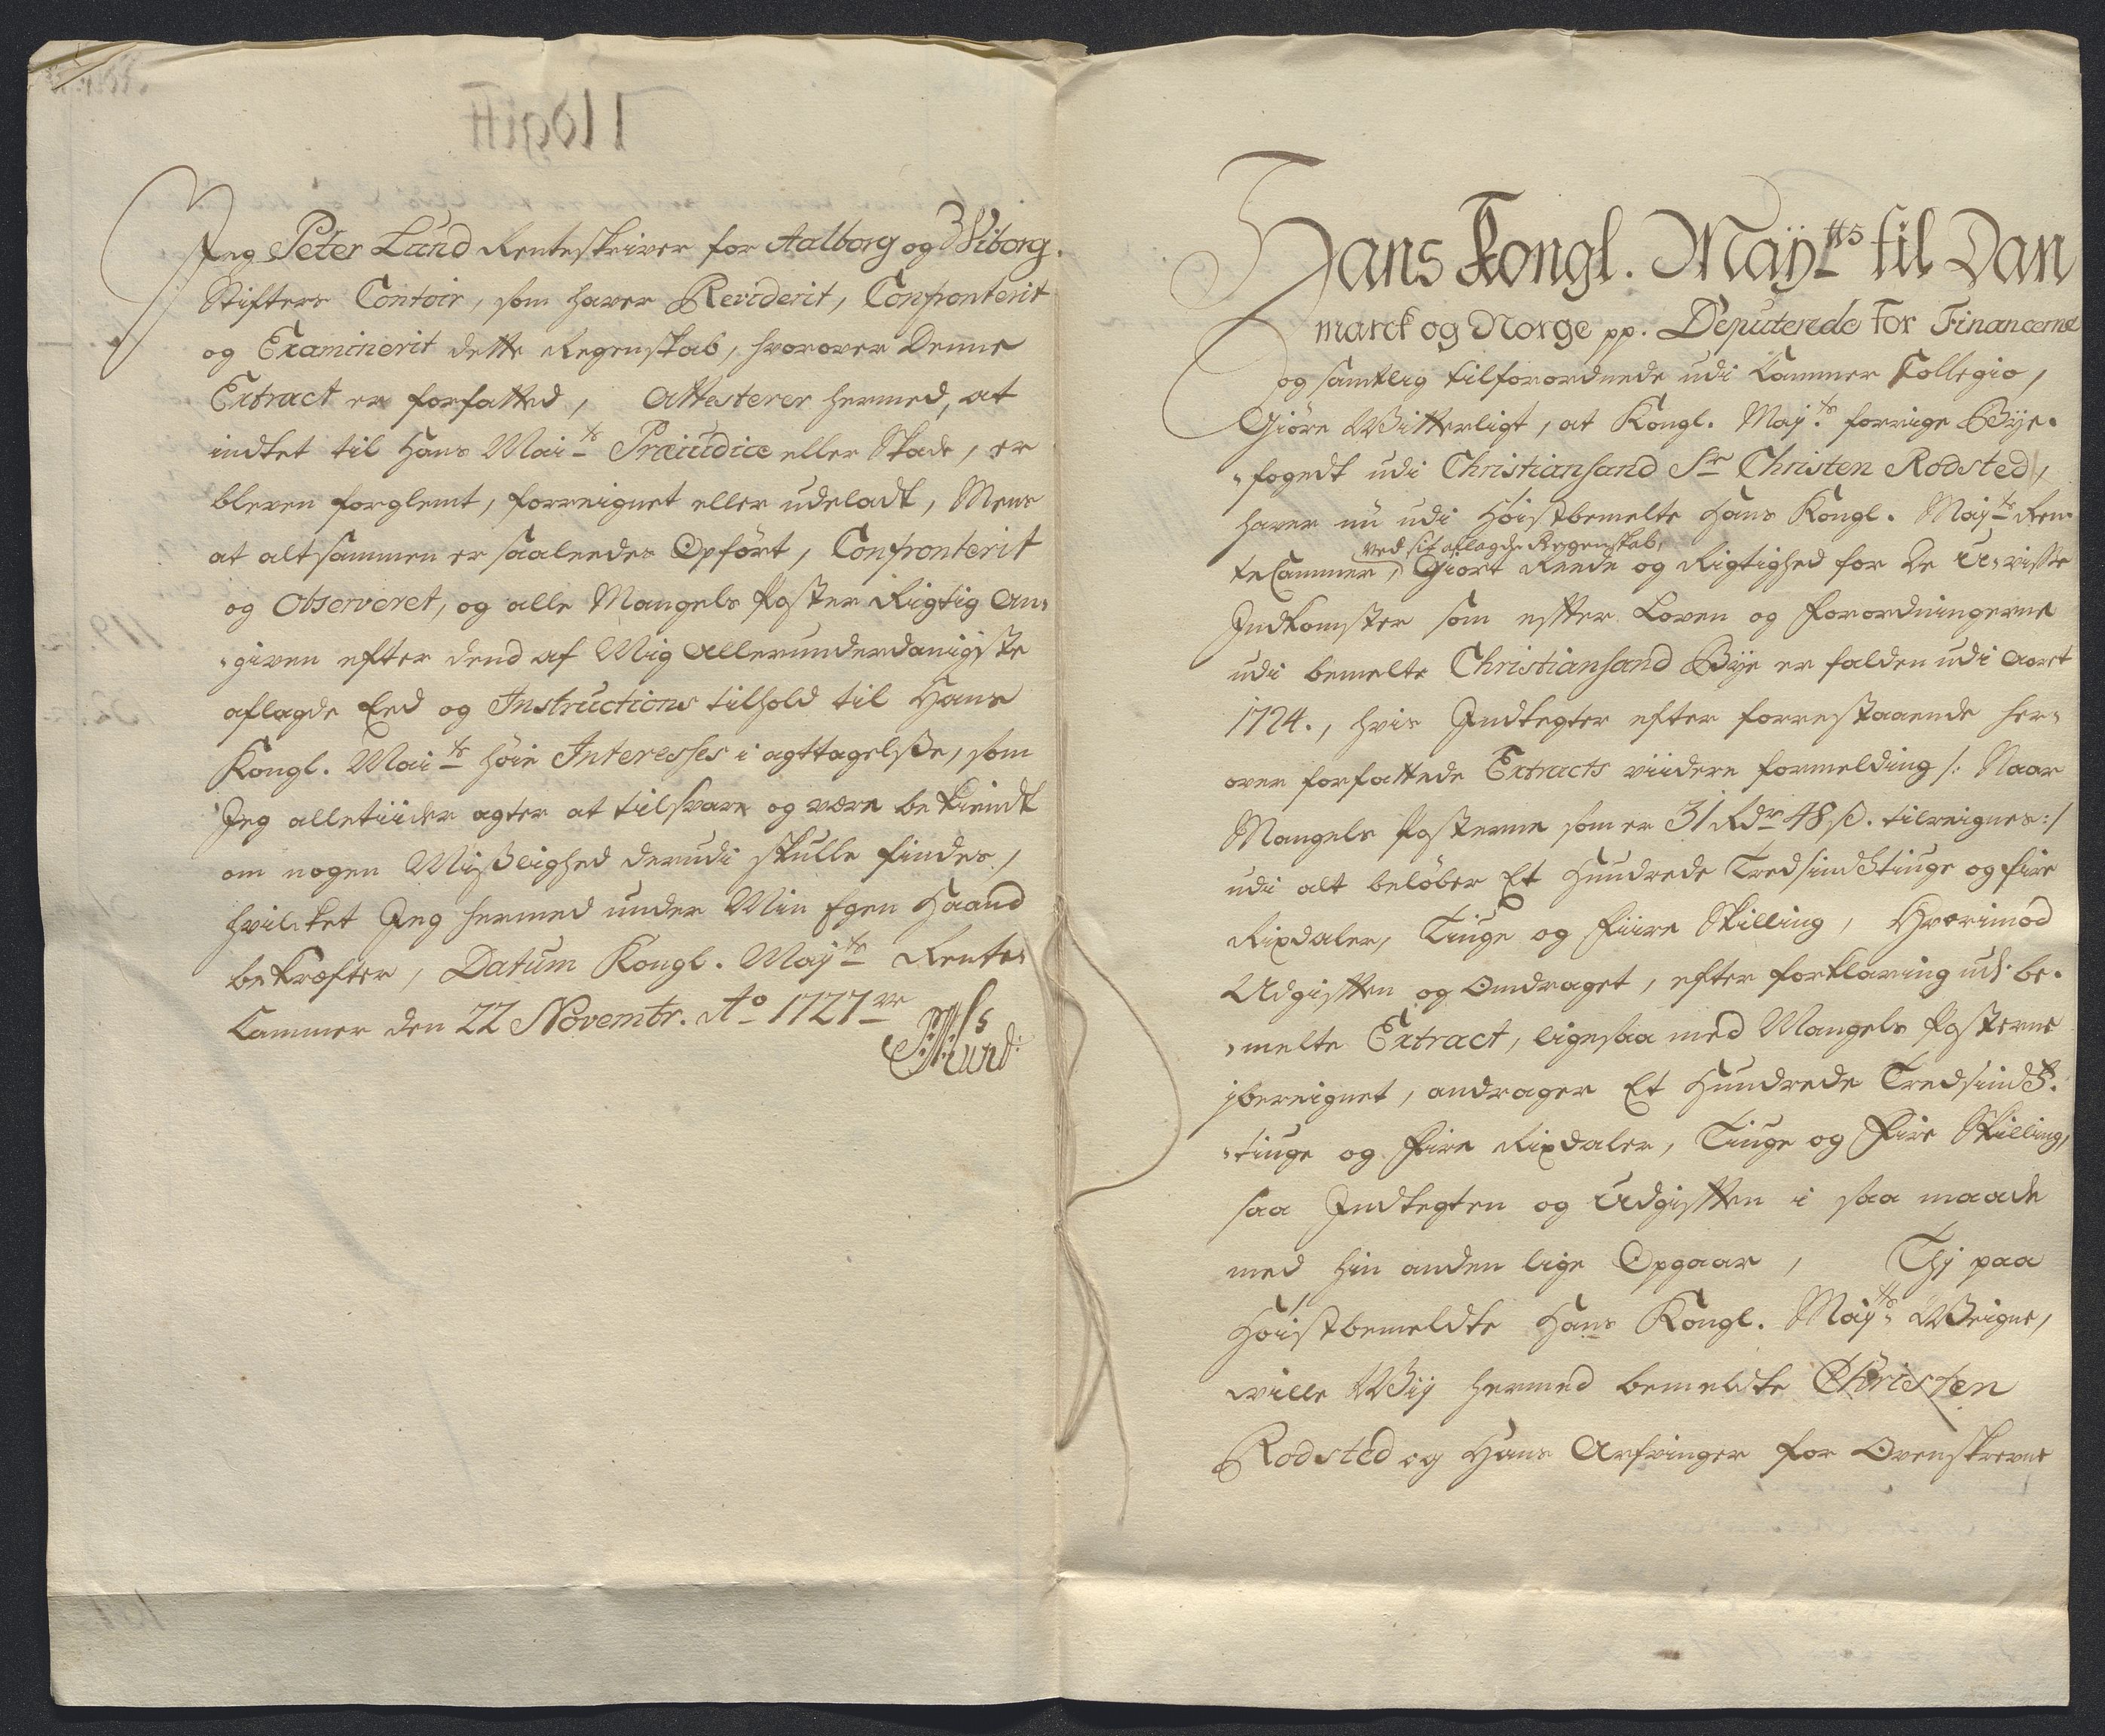 Jeg Peter Lund Renteskriver for Aalborg og Wiborg.
Stifters Contoir, som haver Reviderit, Confronterit
og Examinerit dette Regenskab, hvorover Denne
Extract er forfatted, Attesterer hermed, at
indtet til Hans Mai.ts Præiudice eller Skade, er
bleven forglemt, forreignet eller udeladt, Mens
at altsammen er saaleedes Opført, Confronterit
og Observeret, og alle Mangels Poster Rigtig An,
„given efter dend af Mig Allerunderdanigste
aflagde Eed og Instructions tilhold til Hans
Kongl. Mai.ts høie Interesses i agttagelsse, som
Jeg alletiider agter at tilsvare og være bekiendt
om nogen Misslighed derudi skulle findes,
hvilcket Jeg hermed under Min Egen Haand
bekræfter, Datum Kongl. Maÿ.ts Rente,
Cammer den 22 Novembr. Ao 1727
PLund:
Hans Kongl. Maÿ.tts til Dan
marck og Norge pp. Deputerede for Financerne
og samtlig tilforordnede udi Cammer Collegio,
Giøre Witterligt, at Kongl. Maÿ.ts forrige Bÿe.
„fogedt udi Christiansand Sr Christen Rodsted,
haver nu udi Høistbemelte Hans Kongl. Maÿ.ts Ren
ved sit aflagde Regenskab,
teCammer, Giort Reede og Rigtighed for De U,visse
Indkomster som efter Loven og Forordningerne
udi bemelte Christiansand Bÿe er falden udi Aaret
1724., hvis Indtegter efter forrestaaende her,
over forfattede Extracts viidere formelding /: Naar
Mangels Posterne som er 31 Rdr 48 ß. tilreignes :/
udi alt beløber Et Hundrede Tredsindstiuge og fire
Rixdaler, Tiuge og fiire Skilling, Hvorimod
Udgifften og Omdraget, efter forklaring udi be.
„melte Extract, ligesaa med Mangels Posterne
ibereignet, andrager Et Hundrede Tredsinds.
„tiuge og Fire Rixdaler, Tiuge og Fire Skilling,
saa Indtegten og Udgifften i saa maade
med hin anden lige Opgaar, Thj paa
Høistbemeldte Hans Kongl. Maÿ.ts Weigne,
wille Wij hermed bemeldte Christen
Rodsted og Hans Arfvinger for Ovenskrevne